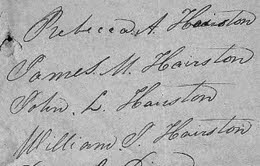 Rebecca A. Hairston
James. M. Hairston
John. L. Hairston
William S. Hairston